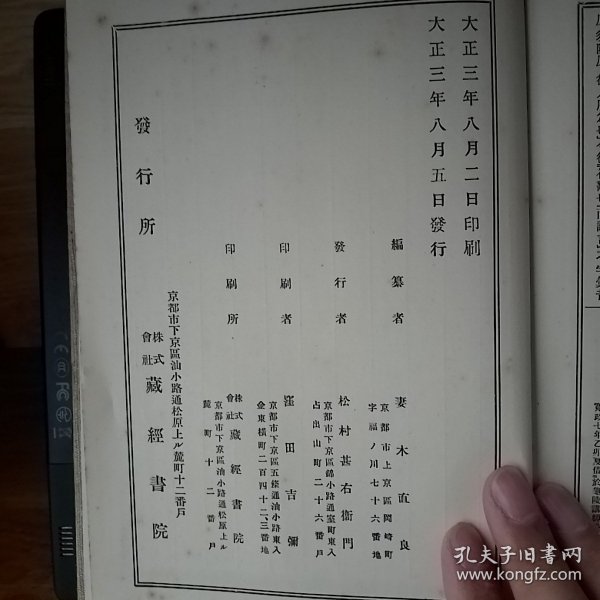 大正三年八月二日印刷
大正三年八月五日發行
編纂者
京都市上京區岡崎町
字福ノ川七十六番地
妻木直良
發行者
京都市下京區錦小路通室町東入
占出山町二十六番戶
松村甚右衞門
印刷者
京都市下京區五條通油小路東入
金東橫町二百四十二、三番地
窪田吉彌
印刷所
京都市下京區油小路通松原上ル
麓町十二番戶
株式會社藏經書院
發行所
京都市下京區油小路通松原上ル麓町十二番戶
株式會社藏經書院
孔夫子旧书网
www.kongfz.com